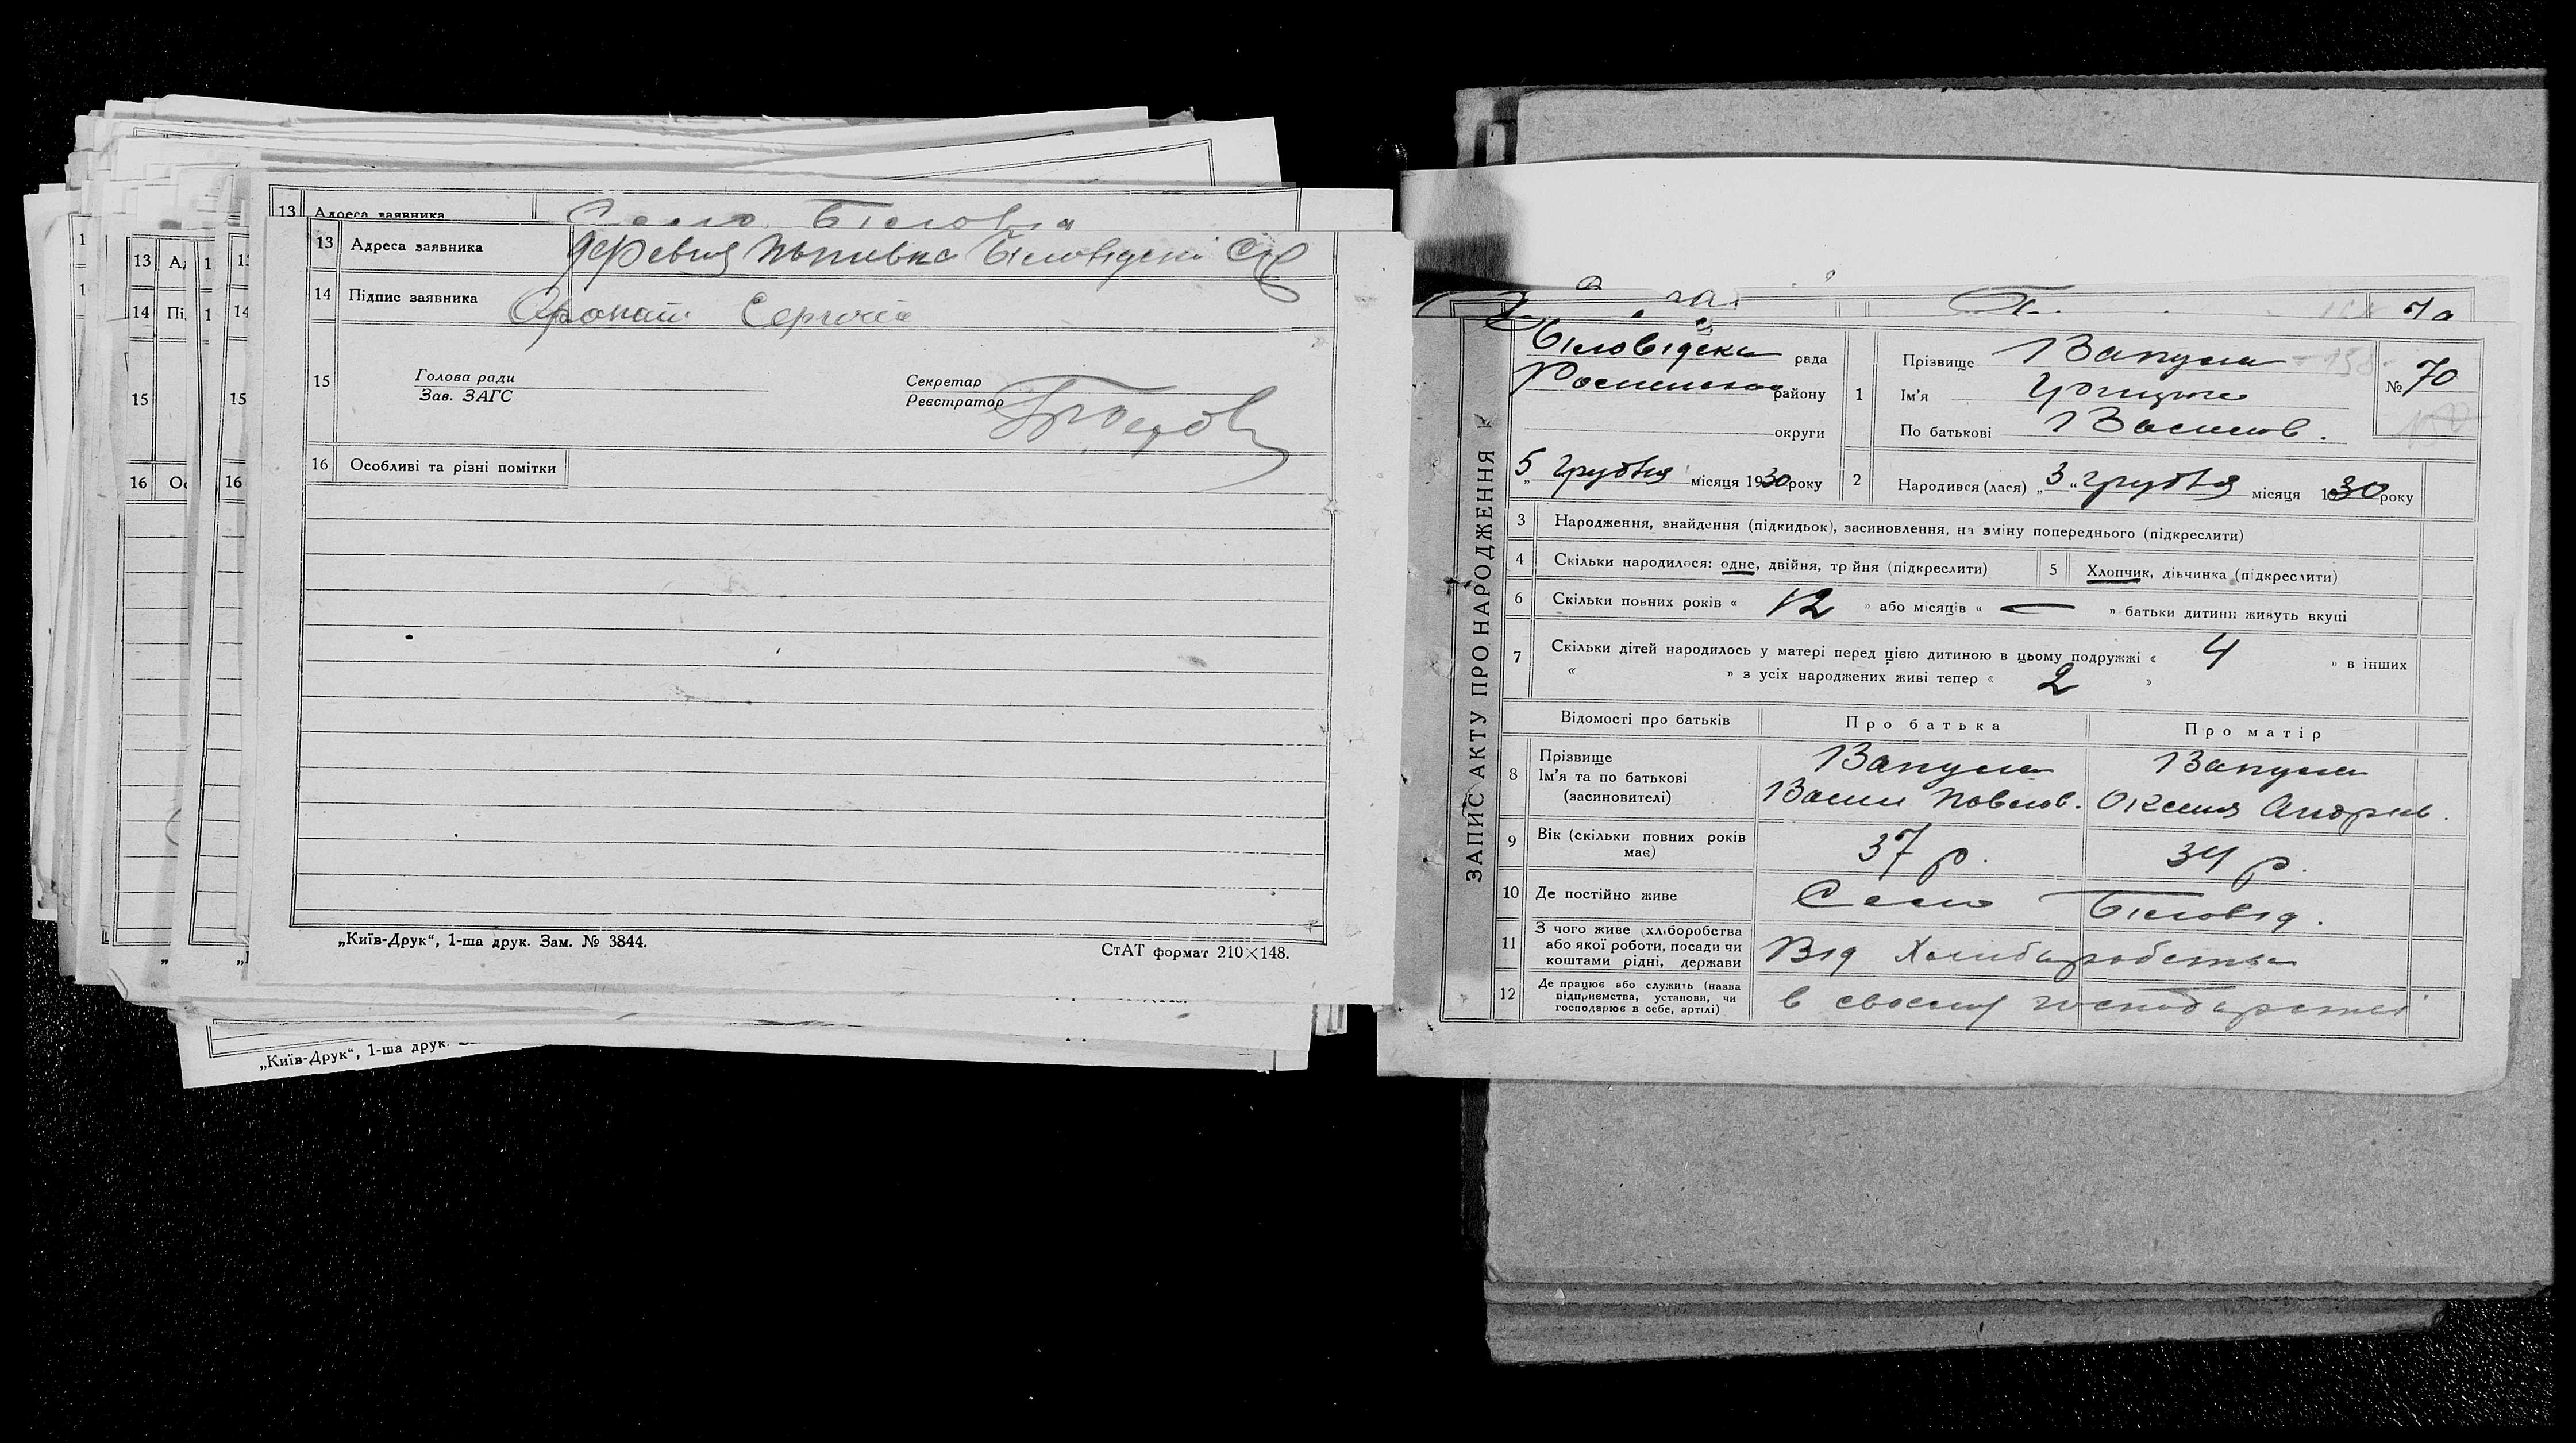 13 Адреса заявника Село
13 Адреса заявника деревня Біловідськ
14 Підпис заявника Сергій
15 Голова ради
Зав. ЗАГС
Секретар
Реєстратор
16 Особливі та різні помітки
„Київ-Друк“, 1-ша друк. Зам. № 3844.
СтАТ формат 210×148.
13
14
15
16
„Київ-Друк“, 1-ша друк.
ЗАПИС АКТУ ПРО НАРОДЖЕННЯ
Біловідська рада
району
округи
5 грудня місяця 1930 року
1 Прізвище Вапула
Ім'я Грицько
По батькові Васильов.
№ 70
2 Народився (лася) „3“ грудня місяця 1930 року
3 Народження, знайдення (підкидьок), засиновлення, на зміну попереднього (підкреслити)
4 Скільки народилося: одне, двійня, трійня (підкреслити)
5 Хлопчик, дівчинка (підкреслити)
6 Скільки повних років « 12 » або місяців « — » батьки дитини живуть вкупі
7 Скільки дітей народилось у матері перед цією дитиною в цьому подружжі « 4 » в інших
« » з усіх народжених живі тепер « 2 »
Відомості про батьків Про батька Про матір
8 Прізвище Вапула Вапула
Ім'я та по батькові Павлов. Оксеня Андріїв.
(засновителі)
9 Вік (скільки повних років має) 37 р. 34 р.
10 Де постійно живе Село Біловід.
11 З чого живе (хліборобства
або якої роботи, посади чи
коштами рідні, держави Від Хлиборобства
12 Де працює або служить (назва
підприємства, установи, чи
господарює в себе, артілі) в своєму господарстві